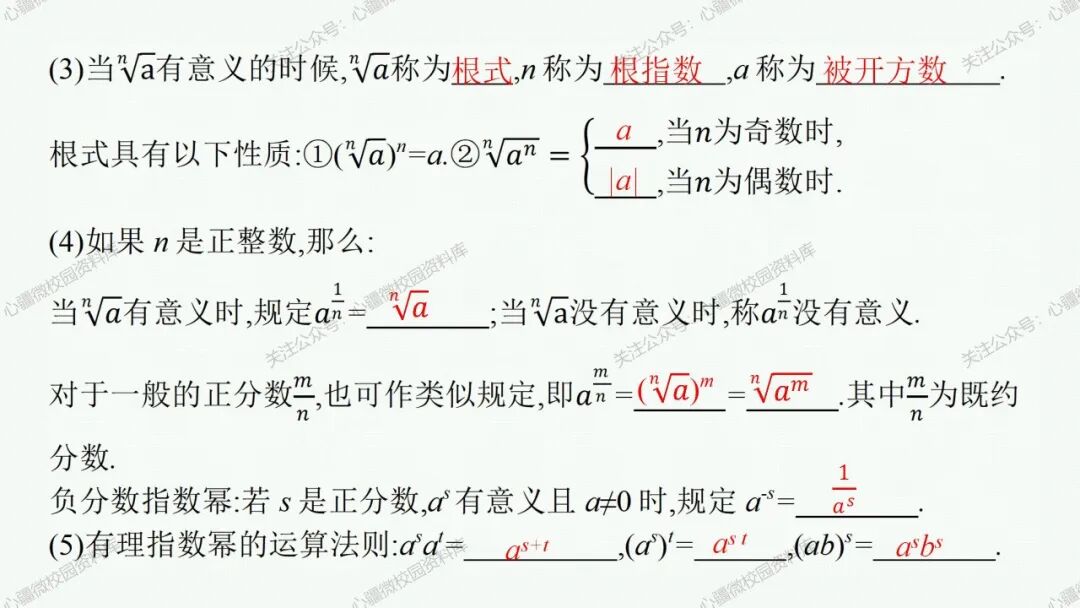 (3)当ⁿ√a有意义的时候,ⁿ√a称为根式,n称为 根指数 ,a称为 被开方数 .
根式具有以下性质:①(ⁿ√a)ⁿ=a.②ⁿ√aⁿ = { a ,当n为奇数时,
|a| ,当n为偶数时.
(4)如果n是正整数,那么:
当ⁿ√a有意义时,规定a^(1/n)= ⁿ√a ;当ⁿ√a没有意义时,称a^(1/n)没有意义.
对于一般的正分数m/n,也可作类似规定,即a^(m/n)=(ⁿ√a)^m=ⁿ√a^m.其中m/n为既约
分数.
负分数指数幂:若s是正分数,a^s有意义且a≠0时,规定a^-s= 1/a^s .
(5)有理指数幂的运算法则:a^s a^t= a^(s+t) ,(a^s)^t= a^(s t) ,(ab)^s= a^s b^s .
关注公众号:
心疆微校园资料库